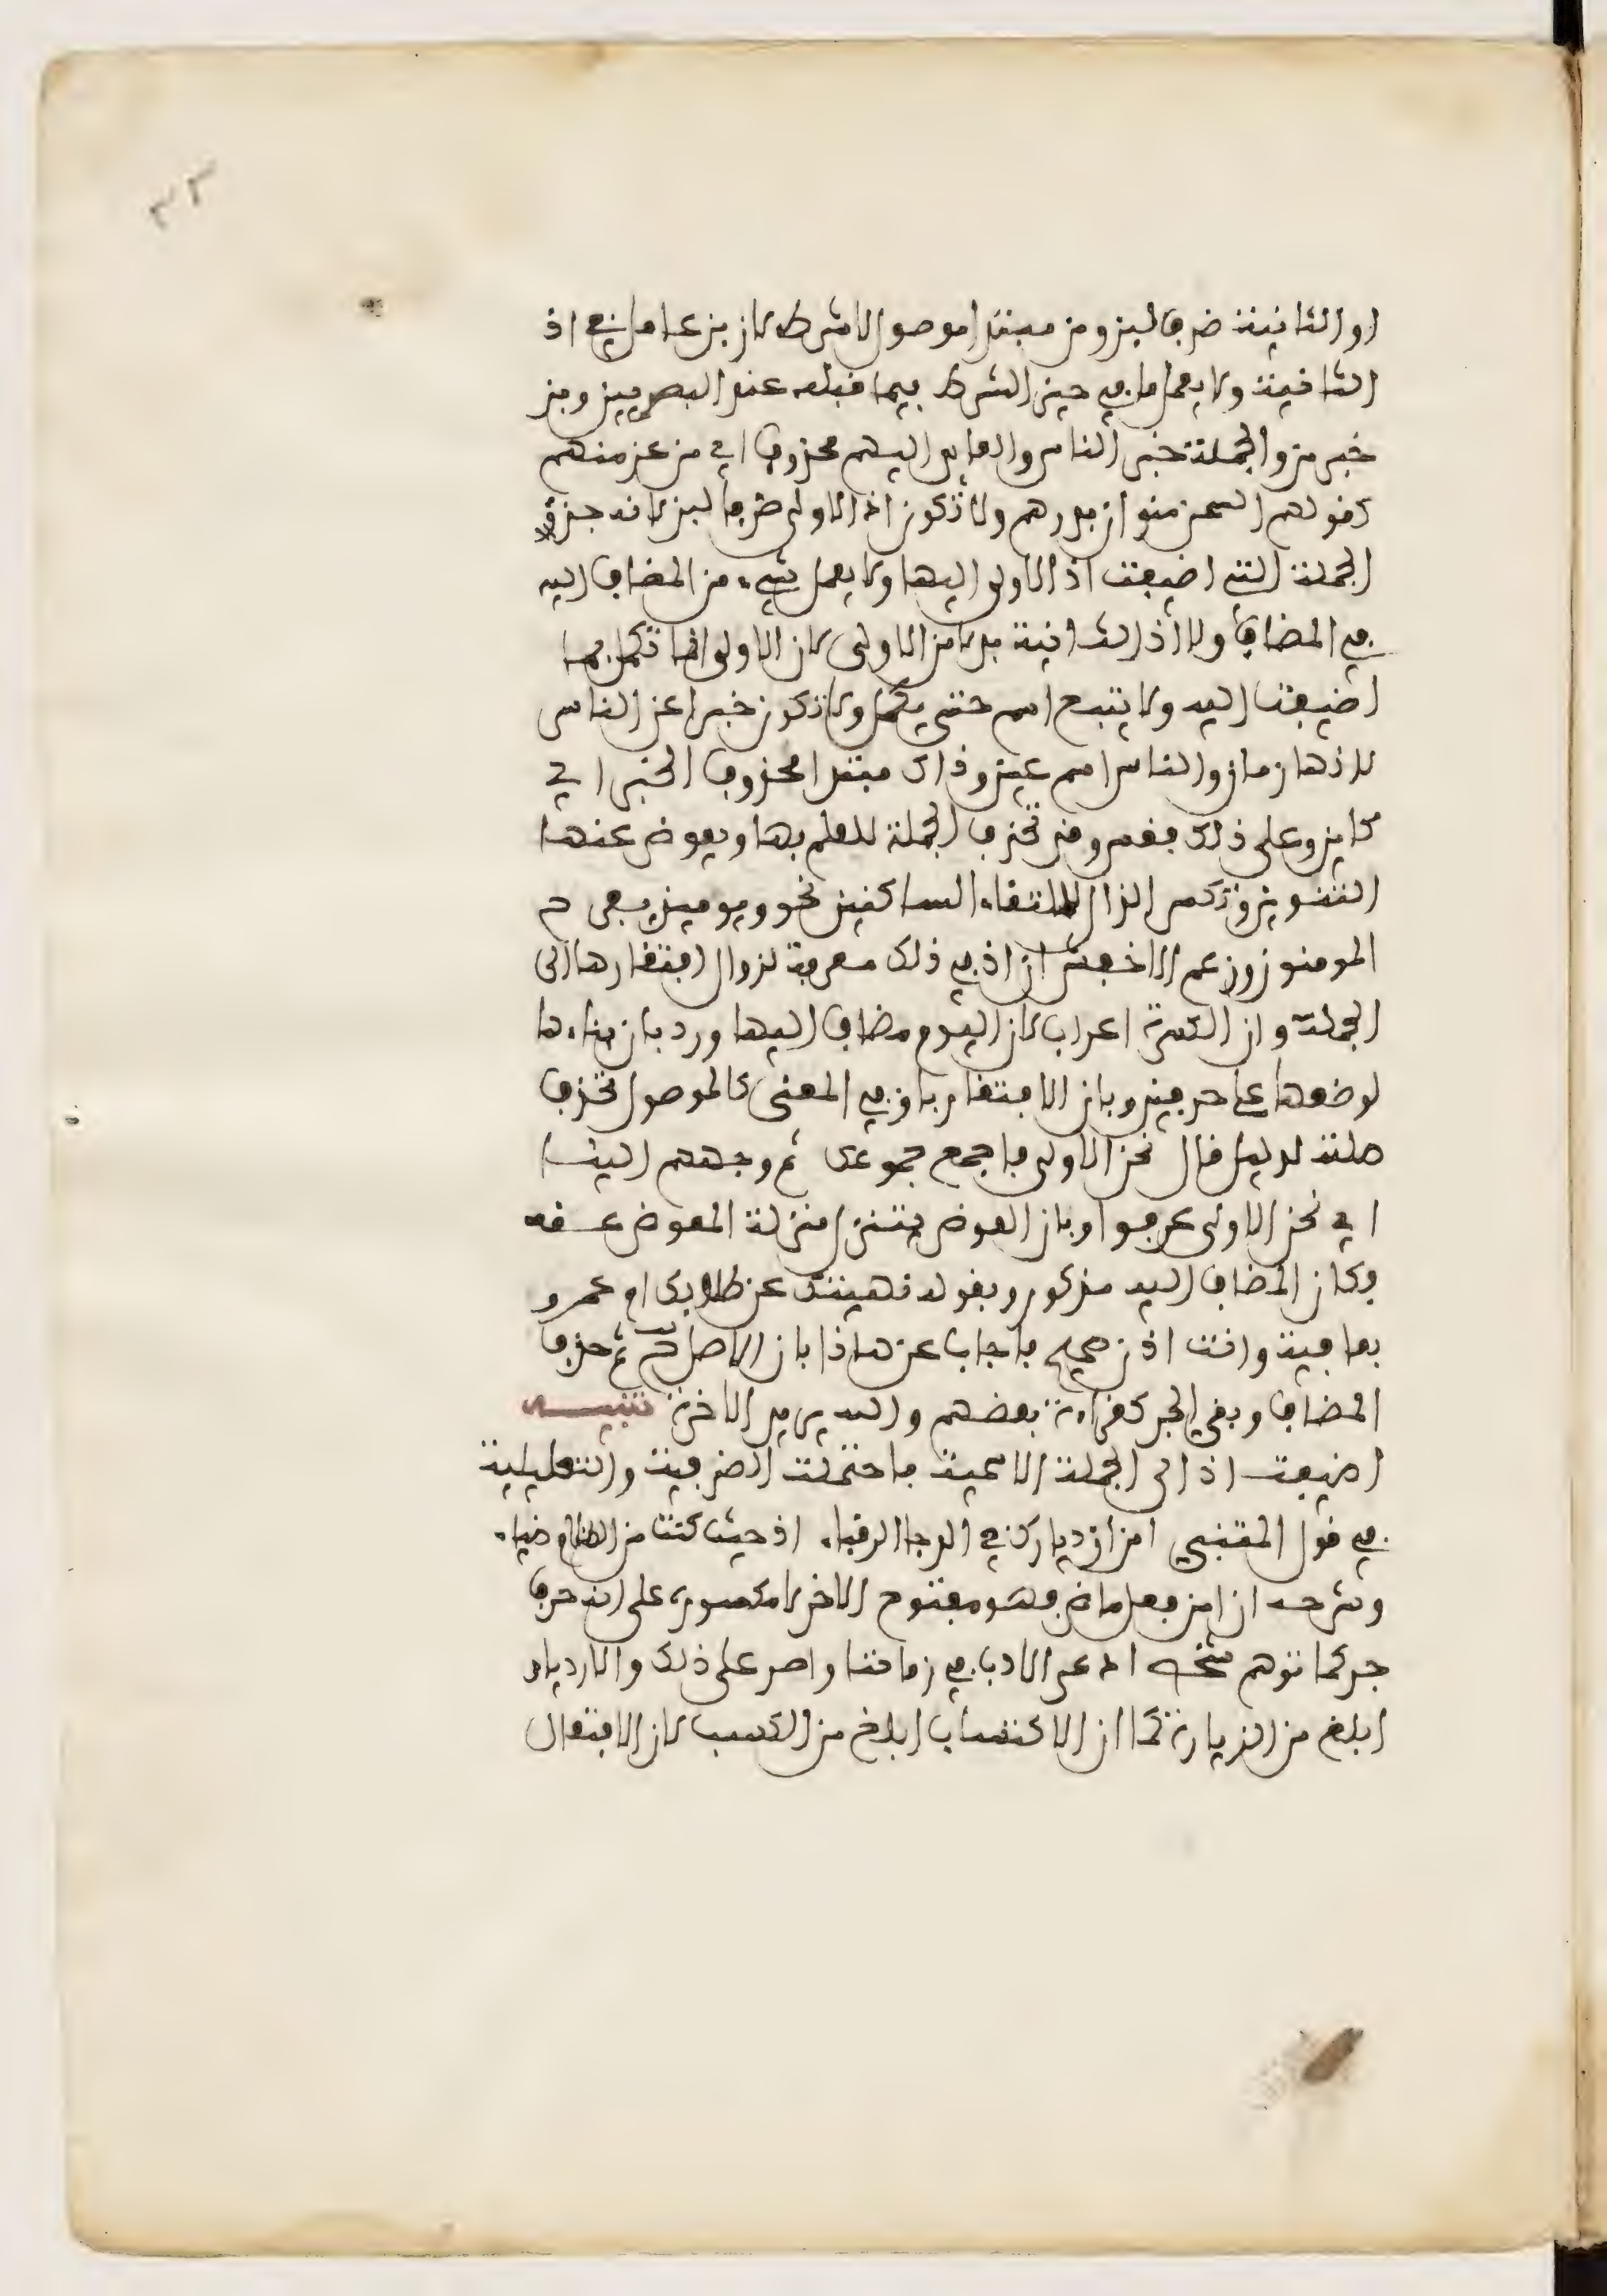 ٣٢
او الثانية ضرف لبز ومن مبتدا موصولا شرط لان بز عامل في اذ
الثانية ولا يعمل ما في حيز الشرط فيما قبله عند البصريين وبز
خبر من والجملة خبر الناس والعايد اليهم محذوف اي من عز منهم
كقولهم السمن منوان بدرهم ولا تكون اذ الاولى ظرفا لبز لانه جزء
الجملة التي اضيفت اذ الاولى اليها ولا يعمل شيء من المضاف اليه
في المضاف ولا اذ الثانية بدلا من الاولى لان الاولى انما تكمل بما
اضيفت اليه ولا يتبع اسم حتى يكمل ولا تكون خبرا عن الناس
لانها زمان والناس اسم عين وذاك مبتدا محذوف الخبر اي
كاين وعلى ذلك فقس وقد تحذف الجملة للعلم بها ويعوض عنها
التنوين وتكسر الذال لالتقاء الساكنين نحو ويوميذ يفرح
المومنون وزعم الاخفش ان اذ في ذلك معربة لزوال افتقارها الى
الجملة وان الكسرة اعراب لان اليوم مضاف اليها ورد بان بناءها
لوضعها على حرفين وبان الافتقار باق في المعنى كالموصول تحذف
صلته لدليل قال نحن الاولى فاجمع جموعك ثم وجههم الينا
اي نحن الاولى عرفوا وبان العوض يتنزل منزلة المعوض عنه
فكان المضاف اليه مذكور وبقوله نهيتك عن طلابك ام عمرو
بعافية وانت اذ صحيح فاجاب عن هاذا بان الاصل ثم حذف
المضاف وبقي الجر كقراءة بعضهم والله يريد الاخرة تنبيه
اضيفت اذ الى الجملة الاسمية فاحتملت الضرفية والتعليلية
في قول المتنبي امن ازديارك في الدجا الرقباء اذ حيث كنت من الظلام ضياء
وشرحه ان امن فعل ماض فهو مفتوح الاخر لا مكسوره على انه حرف
جر كما توهم شخص ادعى الادب في زماننا واصر على ذلك والازديار
ابلغ من الزيارة كما ان الاكتساب ابلغ من الكسب لان الافتعال